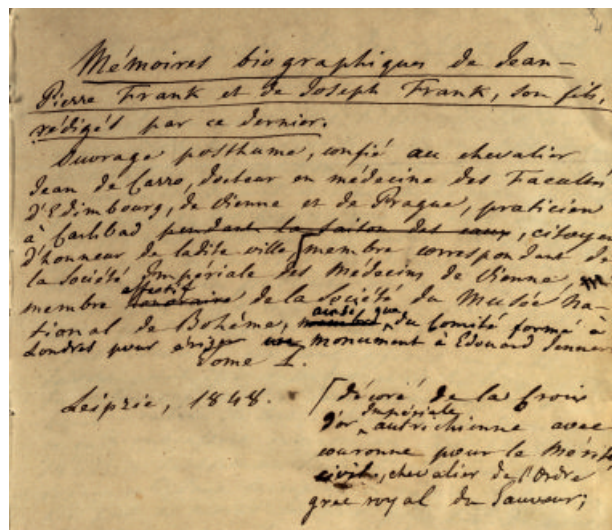 Mémoires biographiques de Jean-
Pierre Frank et de Joseph Frank, son fils,
rédigés par ce dernier.
Ouvrage posthume, confié au chevalier
Jean de Carro, docteur en médecine des Facultés
d'Edimbourg, de Vienne et de Prague, praticien
à Carlsbad pendant la saison des eaux, citoyen
d'honneur de ladite ville, [membre correspondant de
la Société Impériale des Médecins de Vienne,
effectif
membre honoraire de la Société du Musée Na-
ainsi que
tional de Bohême, membre du Comité formé à
Londres pour ériger un monument à Edouard Jenner
Tome 1.
Leipzic, 1848.
[décoré de la Croix
Impériale
d'or autrichienne avec
couronne pour le Mérite
civil, chevalier de l'Ordre
grec royal du Sauveur;